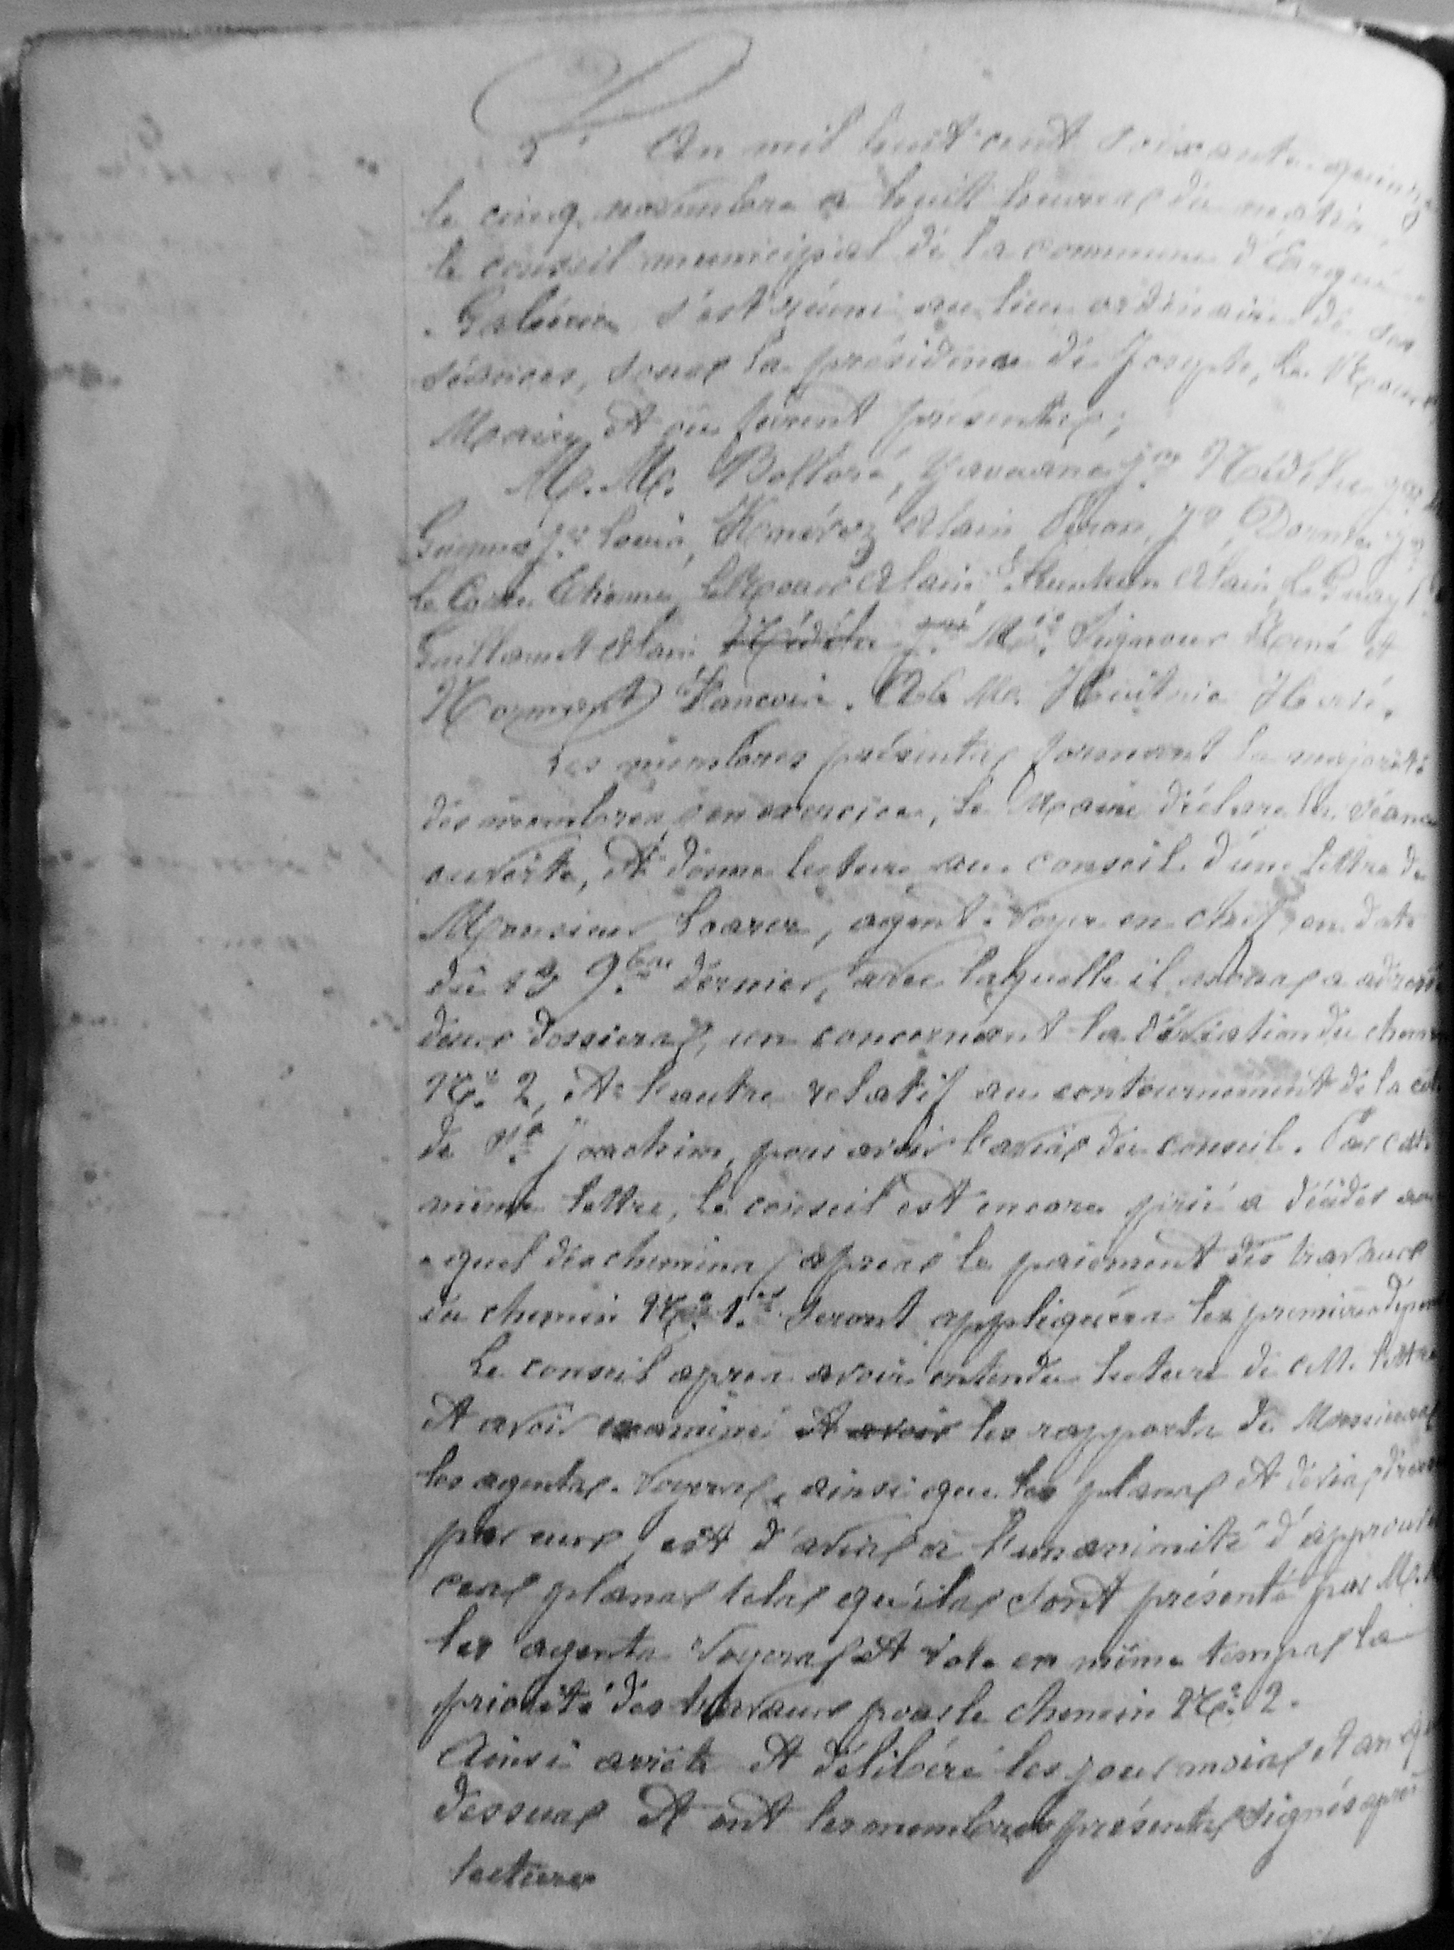 L'An mil huit cent soixante-quinze
le cinq novembre a huit heures du matin,
le conseil municipal de la commune d'Ergué
Gabéric s'est réuni au lieu ordinaire de ses
séances, sous la présidence de Joseph, Le Roux,
Maire, et où furent présents;
M. M. Bolloré, Nédélec
Louis, Alain,
Le Corre Etienne, Le Roux Alain, Alain, Le Guay
Guillamet Alain Nédélec Signour René et
Normant Francois. Et M. Huitric Hervé.
Les membres présents formant la majorité
des membres en exercice, le Maire déclare la séance
ouverte, et donne lecture au conseil d'une lettre de
Monsieur, agent-voyer en chef en date
du 13 9.bre dernier, avec laquelle il nous a adressé
deux dossiers, un concernant la déviation du chemin
N.o 2, et l'autre relatif au contournement de la côte
de St. Joachim, pour avoir l'avis du conseil. Par cette
même lettre, le conseil est encore prié a décider au-
quel des chemins, apres le paiement des travaux
du chemin N.o 1.er seront appliquées les premieres
Le conseil apres avoir entendu lecture de cette lettre
et avoir examiné et avoir les rapports de Messieurs
les agents-voyers, ainsi que les plans et devis dressés
par eux, est d'avis a l'unanimité d'approuver
ces plans tels qu'ils sont présenté par M.M.
les agents voyers et vote en même temps la
priorité des travaux pour le chemin N.o 2.
Ainsi arrêté et délibéré les jour mois et an que
dessus et ont les membres présents signés après
lecture